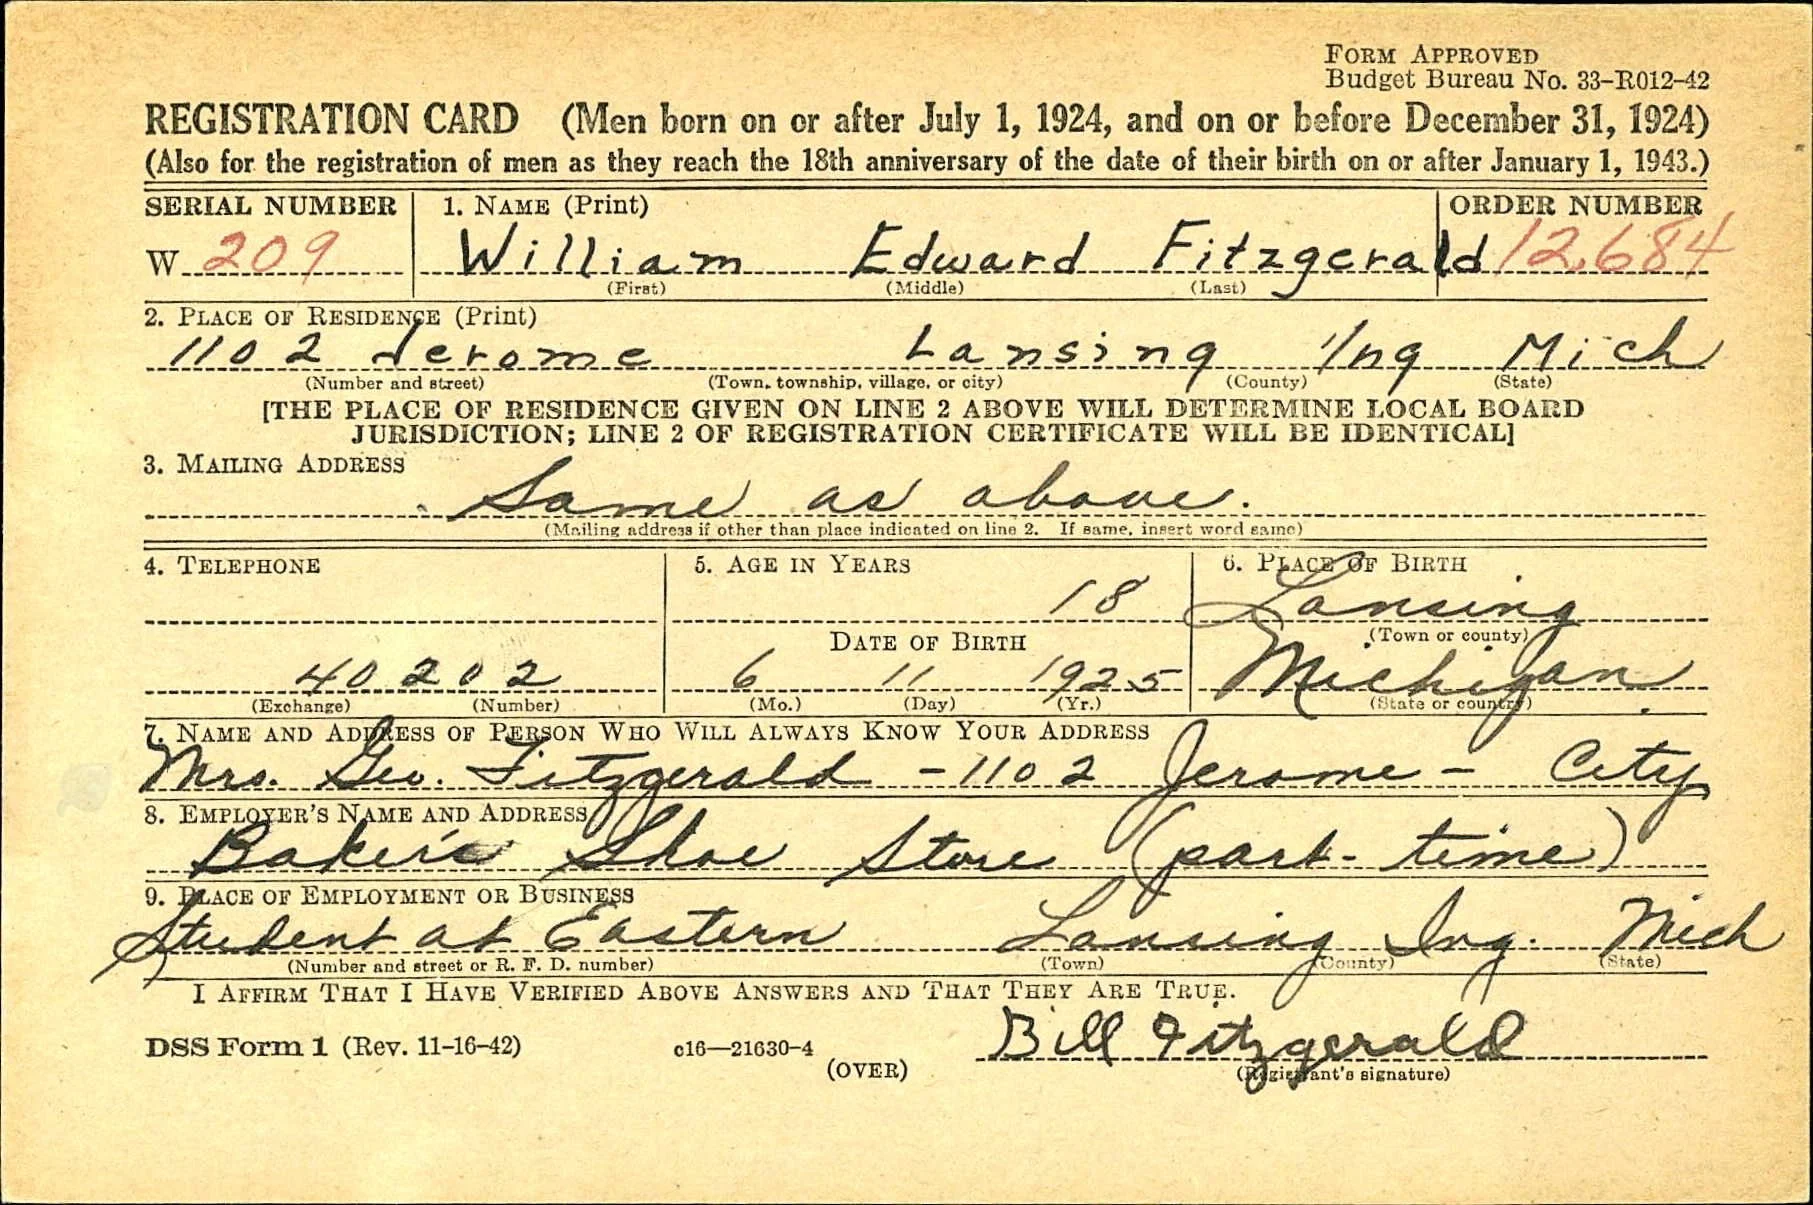 FORM APPROVED
Budget Bureau No. 33-R012-42
REGISTRATION CARD (Men born on or after July 1, 1924, and on or before December 31, 1924)
(Also for the registration of men as they reach the 18th anniversary of the date of their birth on or after January 1, 1943.)
SERIAL NUMBER 1. NAME (Print) ORDER NUMBER
W 209 William Edward Fitzgerald 12,684
(First) (Middle) (Last)
2. PLACE OF RESIDENCE (Print)
1102 Jerome Lansing Ing Mich
(Number and street) (Town, township, village, or city) (County) (State)
[THE PLACE OF RESIDENCE GIVEN ON LINE 2 ABOVE WILL DETERMINE LOCAL BOARD
JURISDICTION; LINE 2 OF REGISTRATION CERTIFICATE WILL BE IDENTICAL]
3. MAILING ADDRESS
Same as above.
(Mailing address if other than place indicated on line 2. If same, insert word same)
4. TELEPHONE 5. AGE IN YEARS 6. PLACE OF BIRTH
18 Lansing
DATE OF BIRTH (Town or county)
40202 6 11 1925 Michigan
(Exchange) (Number) (Mo.) (Day) (Yr.) (State or country)
7. NAME AND ADDRESS OF PERSON WHO WILL ALWAYS KNOW YOUR ADDRESS
Mrs. Geo. Fitzgerald - 1102 Jerome - City
8. EMPLOYER'S NAME AND ADDRESS
Baker's Shoe Store (part-time)
9. PLACE OF EMPLOYMENT OR BUSINESS
Student at Eastern Lansing Ing. Mich
(Number and street or R. F. D. number) (Town) (County) (State)
I AFFIRM THAT I HAVE VERIFIED ABOVE ANSWERS AND THAT THEY ARE TRUE.
DSS Form 1 (Rev. 11-16-42) c16—21630-4 Bill Fitzgerald
(OVER) (Registrant's signature)